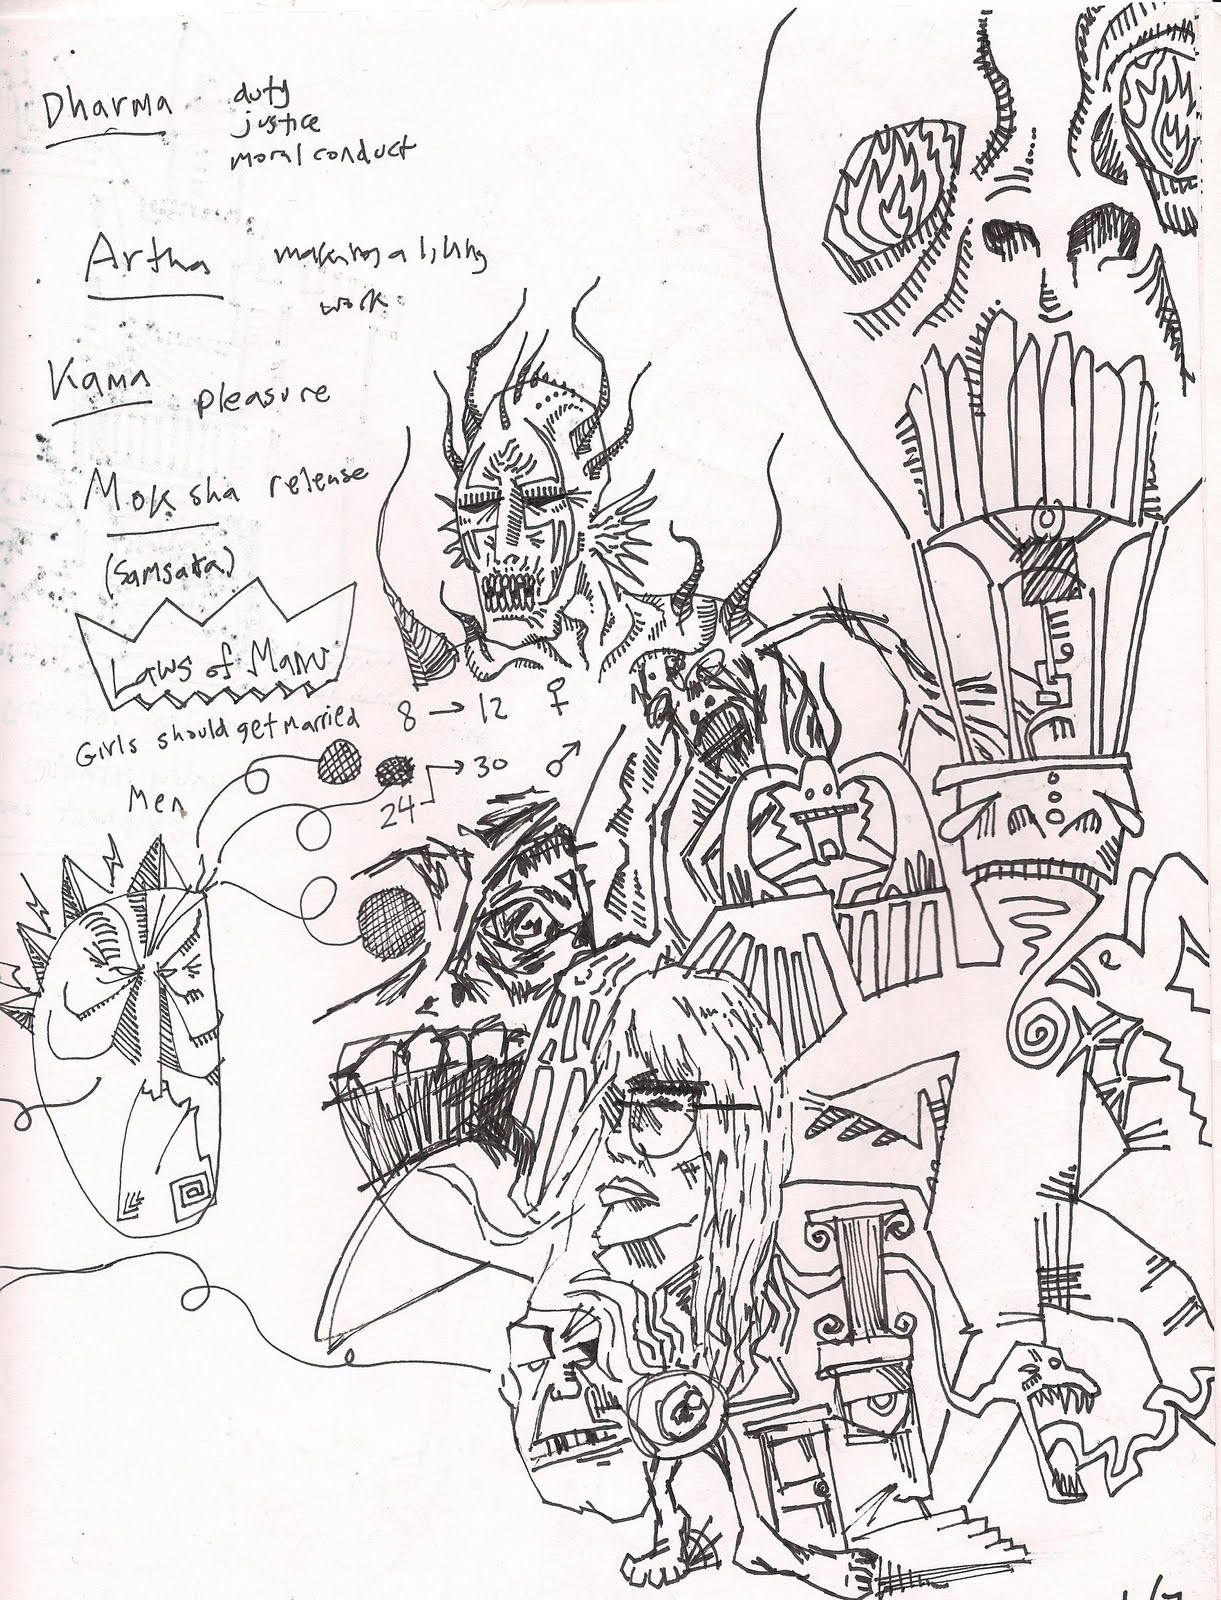 Dharma duty
justice
moral conduct
Artha making a living
work
Kama pleasure
Moksha release
(Samsara)
Laws of Manu
Girls should get married 8 → 12 ♀
Men 24 → 30 ♂